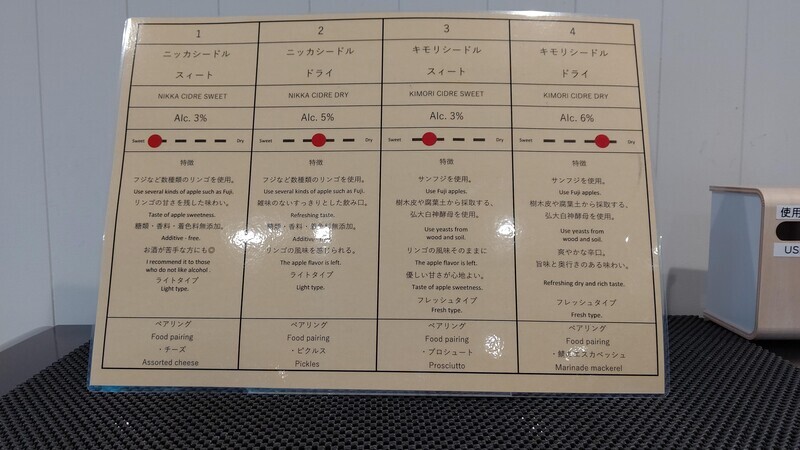 1
ニッカシードル
スィート
NIKKA CIDRE SWEET
Alc. 3%
Sweet
Dry
特徴
フジなど数種類のリンゴを使用。
Use several kinds of apple such as Fuji.
リンゴの甘さを残した味わい。
Taste of apple sweetness.
糖類・香料・着色料無添加。
Additive - free.
お酒が苦手な方にも☺
I recommend it to those
who do not like alcohol .
ライトタイプ
Light type.
ペアリング
Food pairing
・チーズ
Assorted cheese
2
ニッカシードル
ドライ
NIKKA CIDRE DRY
Alc. 5%
Sweet
Dry
特徴
フジなど数種類のリンゴを使用。
Use several kinds of apple such as Fuji.
雑味のないすっきりとした飲み口。
Refreshing taste.
糖類・香料・着色料無添加。
Additive - free.
リンゴの風味を感じられる。
The apple flavor is left.
ライトタイプ
Light type.
ペアリング
Food pairing
・ピクルス
Pickles
3
キモリシードル
スィート
KIMORI CIDRE SWEET
Alc. 3%
Sweet
Dry
特徴
サンフジを使用。
Use Fuji apples.
樹木皮や腐葉土から採取する、
弘大白神酵母を使用。
Use yeasts from
wood and soil.
リンゴの風味そのままに
The apple flavor is left.
優しい甘さが心地よい。
Taste of apple sweetness.
フレッシュタイプ
Fresh type.
ペアリング
Food pairing
・プロシュート
Prosciutto
4
キモリシードル
ドライ
KIMORI CIDRE DRY
Alc. 6%
Sweet
Dry
特徴
サンフジを使用。
Use Fuji apples.
樹木皮や腐葉土から採取する、
弘大白神酵母を使用。
Use yeasts from
wood and soil.
爽やかな辛口。
旨味と奥行きのある味わい。
Refreshing dry and rich taste.
フレッシュタイプ
Fresh type.
ペアリング
Food pairing
・鯖のエスカベッシュ
Marinade mackerel
使用
US